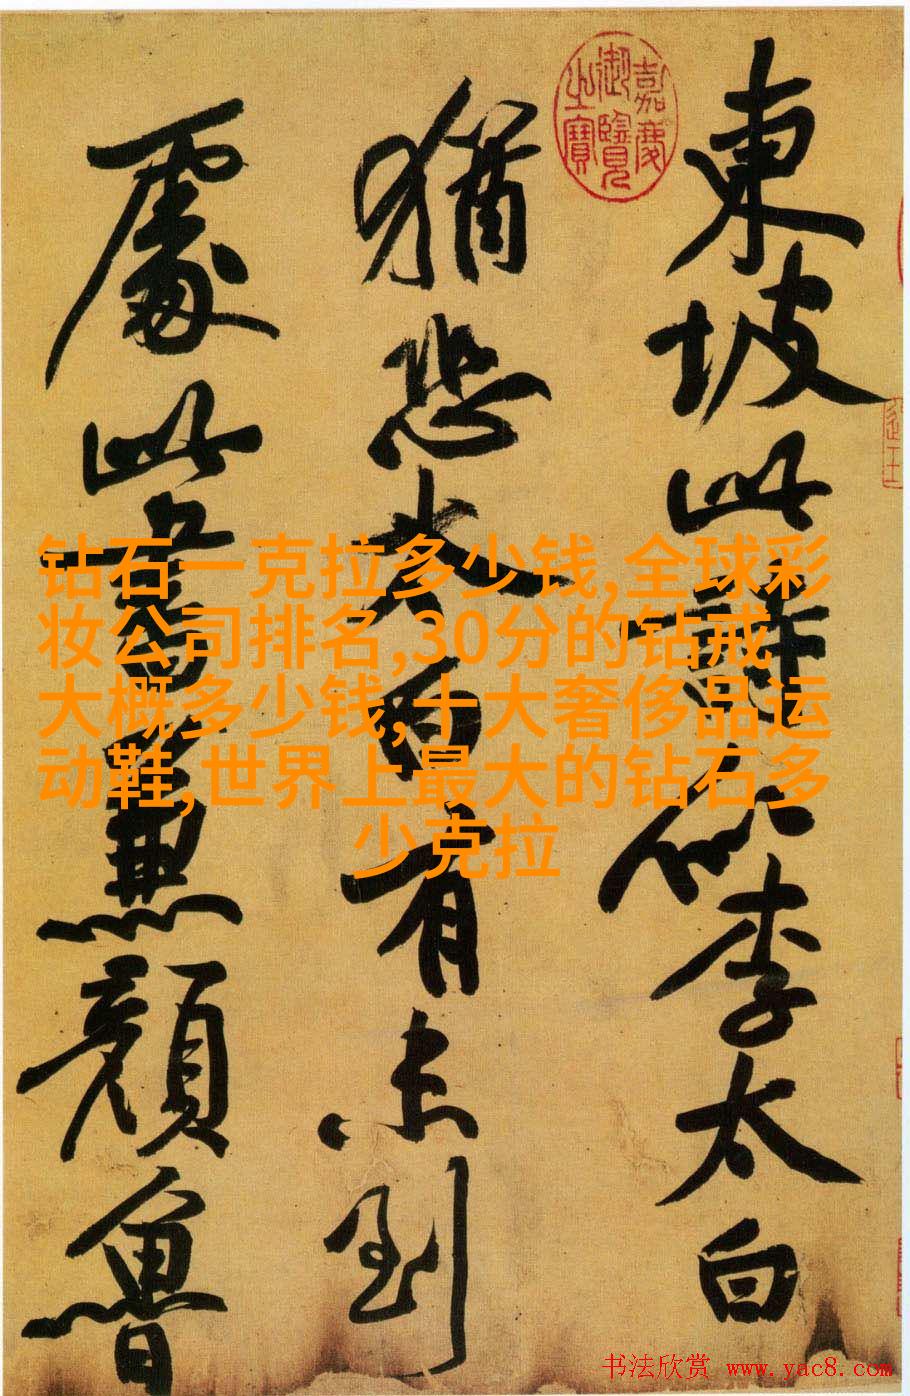 東坡此詩似李太白
猶恐太白有未到
處此書兼顏魯
嘉慶御覽之寶
钻石一克拉多少钱,全球彩
妆公司排名,30分的钻戒
大概多少钱,十大奢侈品运
动鞋,世界上最大的钻石多
少克拉
书法欣赏 www.yac8.com